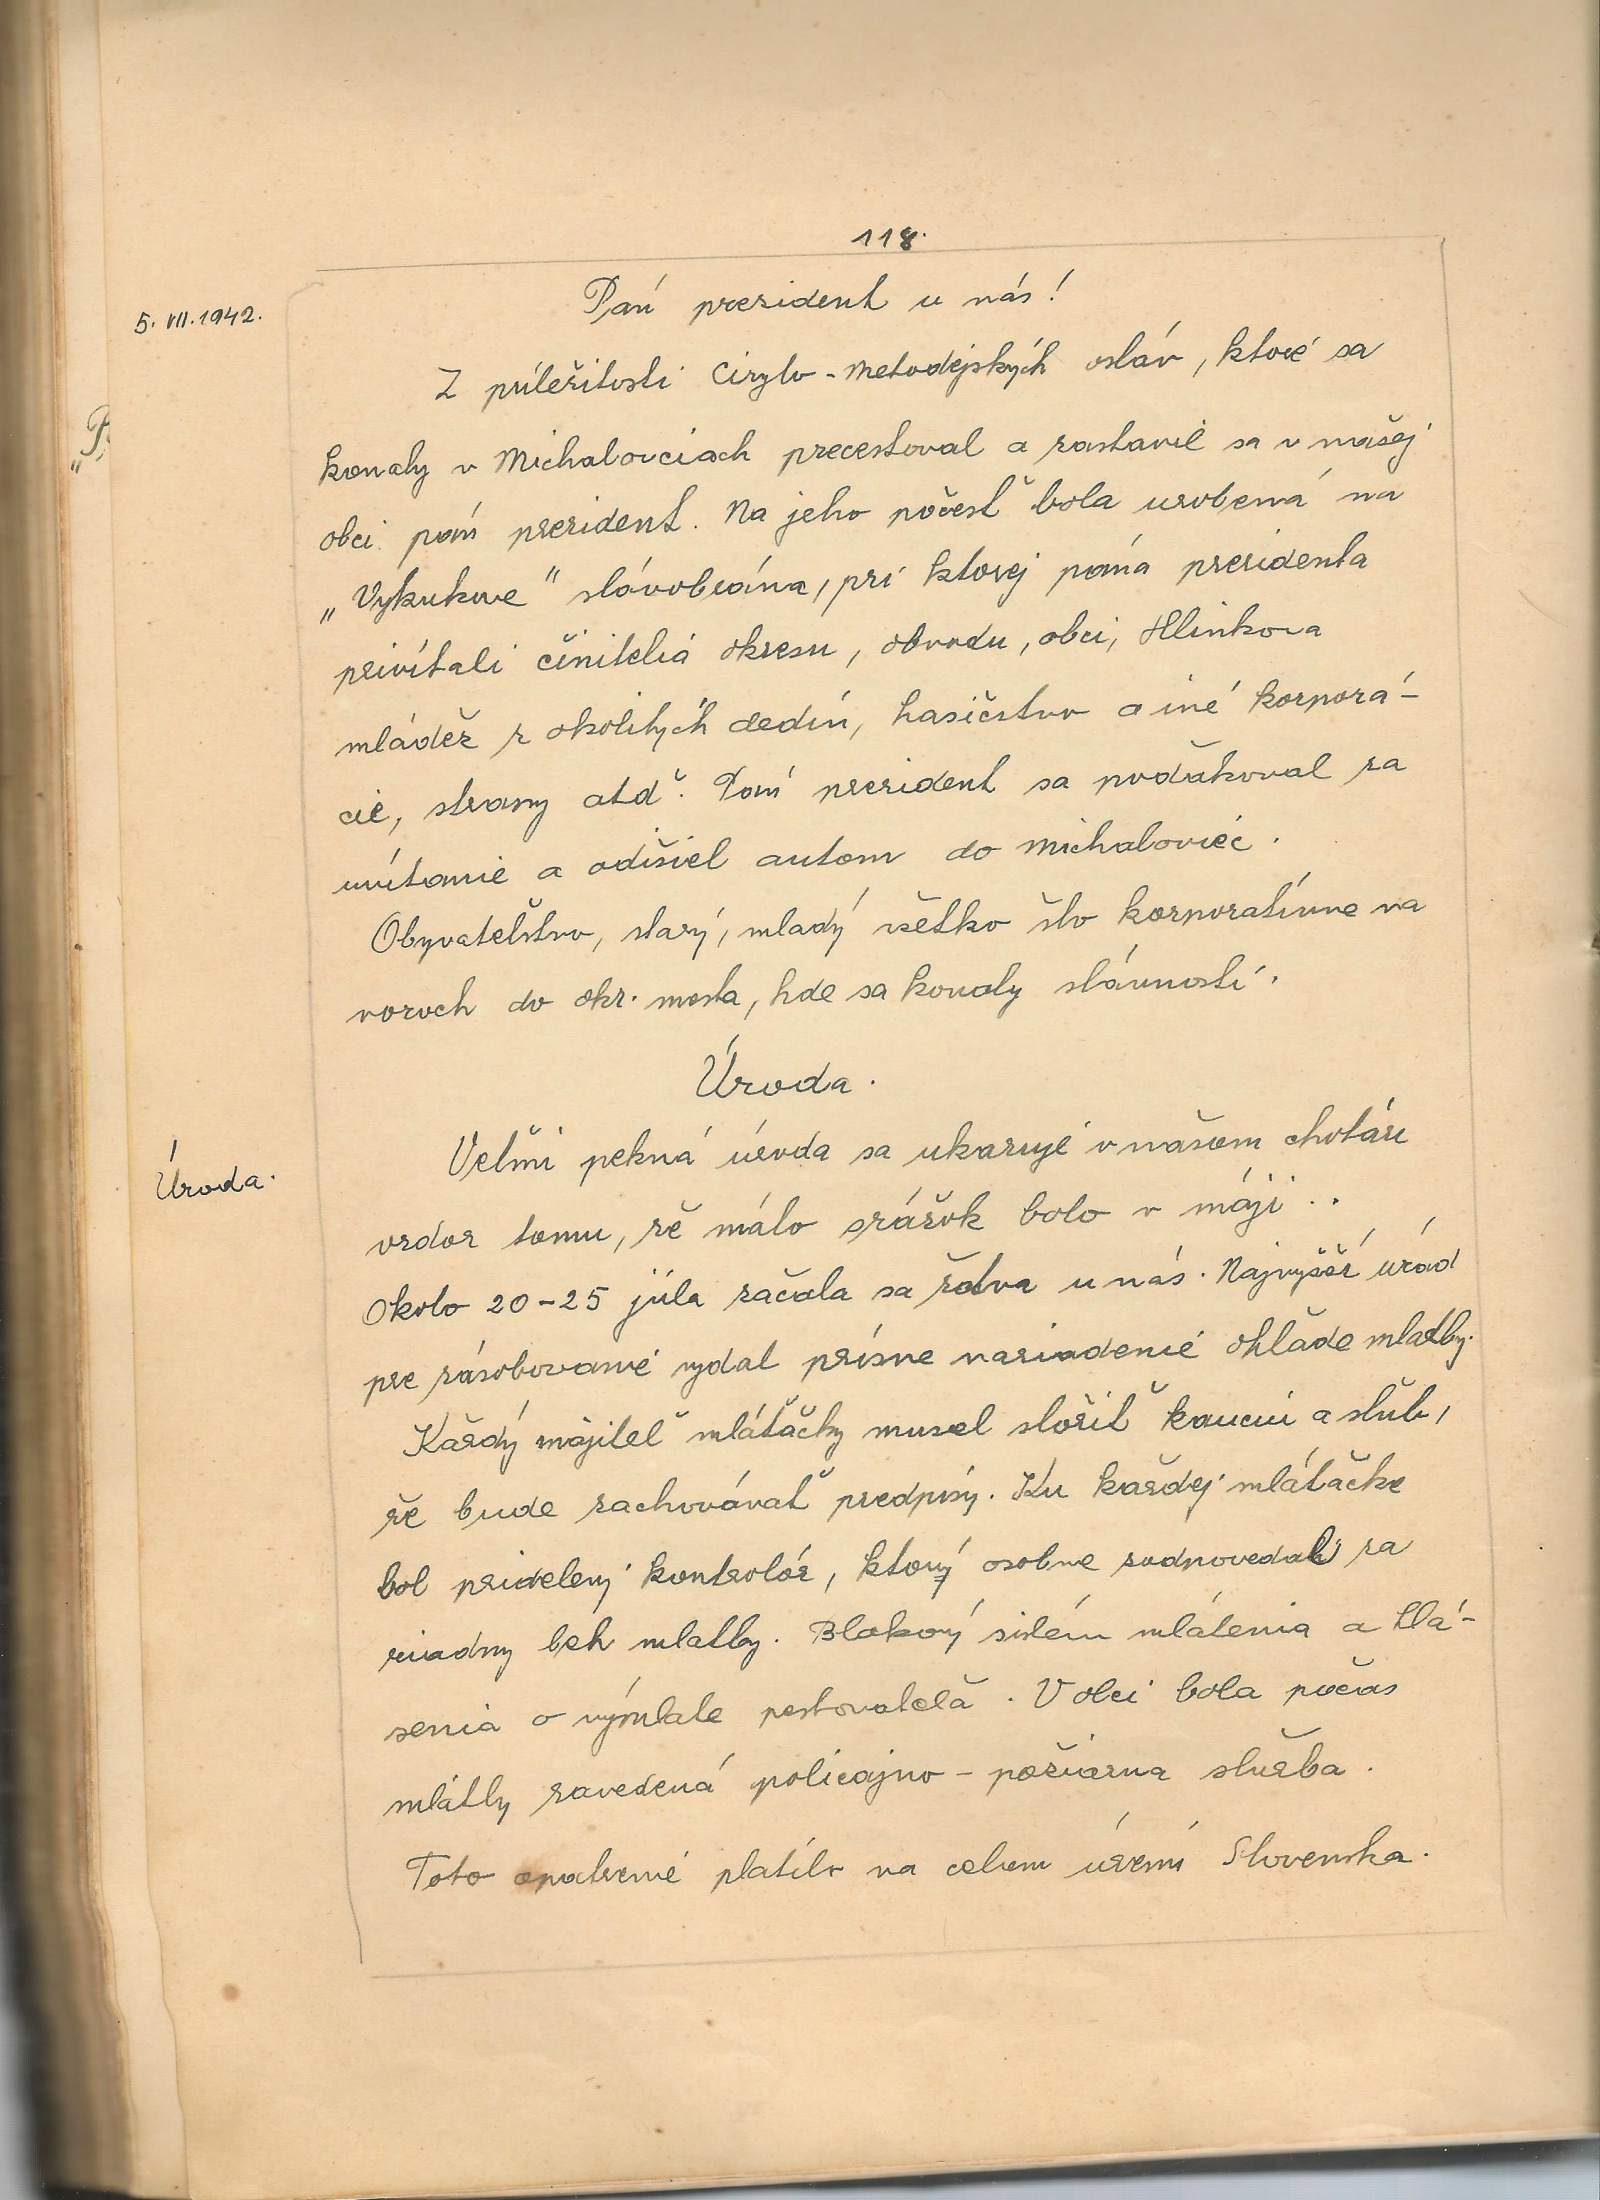 118.
5. VII. 1942.
Pán prezident u nás!
Z príležitosti Cirylo-Metodejských osláv, ktoré sa
konaly v Michalovciach precestoval a zastavil sa v našej
obci pán prezident. Na jeho počesť bola urobená na
„Vykukove" slávobrána, pri ktorej pána prezidenta
privítali činitelia okresu, obvodu, obci, Hlinkova
mládež z okolitých dedín, hasičstvo a iné korporá-
cie, strany atď. Pán prezident sa poďakoval za
uvítanie a odišiel autom do Michaloviec.
Obyvateľstvo, starý, mladý všetko šlo korporatívne na
vozoch do okr. mesta, hde sa konaly slávnosti.
Úroda.
Úroda.
Veľmi pekná úroda sa ukazuje v našom chotáre
vzdor tomu, že málo zrážok bolo v máji..
Okolo 20-25 júla začala sa žatva u nás. Najvyšší úrad
pre zásobovanie vydal prísne nariadenie ohľade mlatby.
Každý majiteľ mláťačky musel složiť kauciu a slub,
že bude zachovávať predpisy. Ku každej mláťačke
bol pridelený kontrolór, ktorý osobne zodpovedal za
riadny beh mlatby. Blokový sistém mlátenia a hlá-
senia o výmlate pestovateľa. V obci bola počas
mlatby zavedená policajno-požiarna služba.
Toto opatrenie platilo na celom území Slovenska.